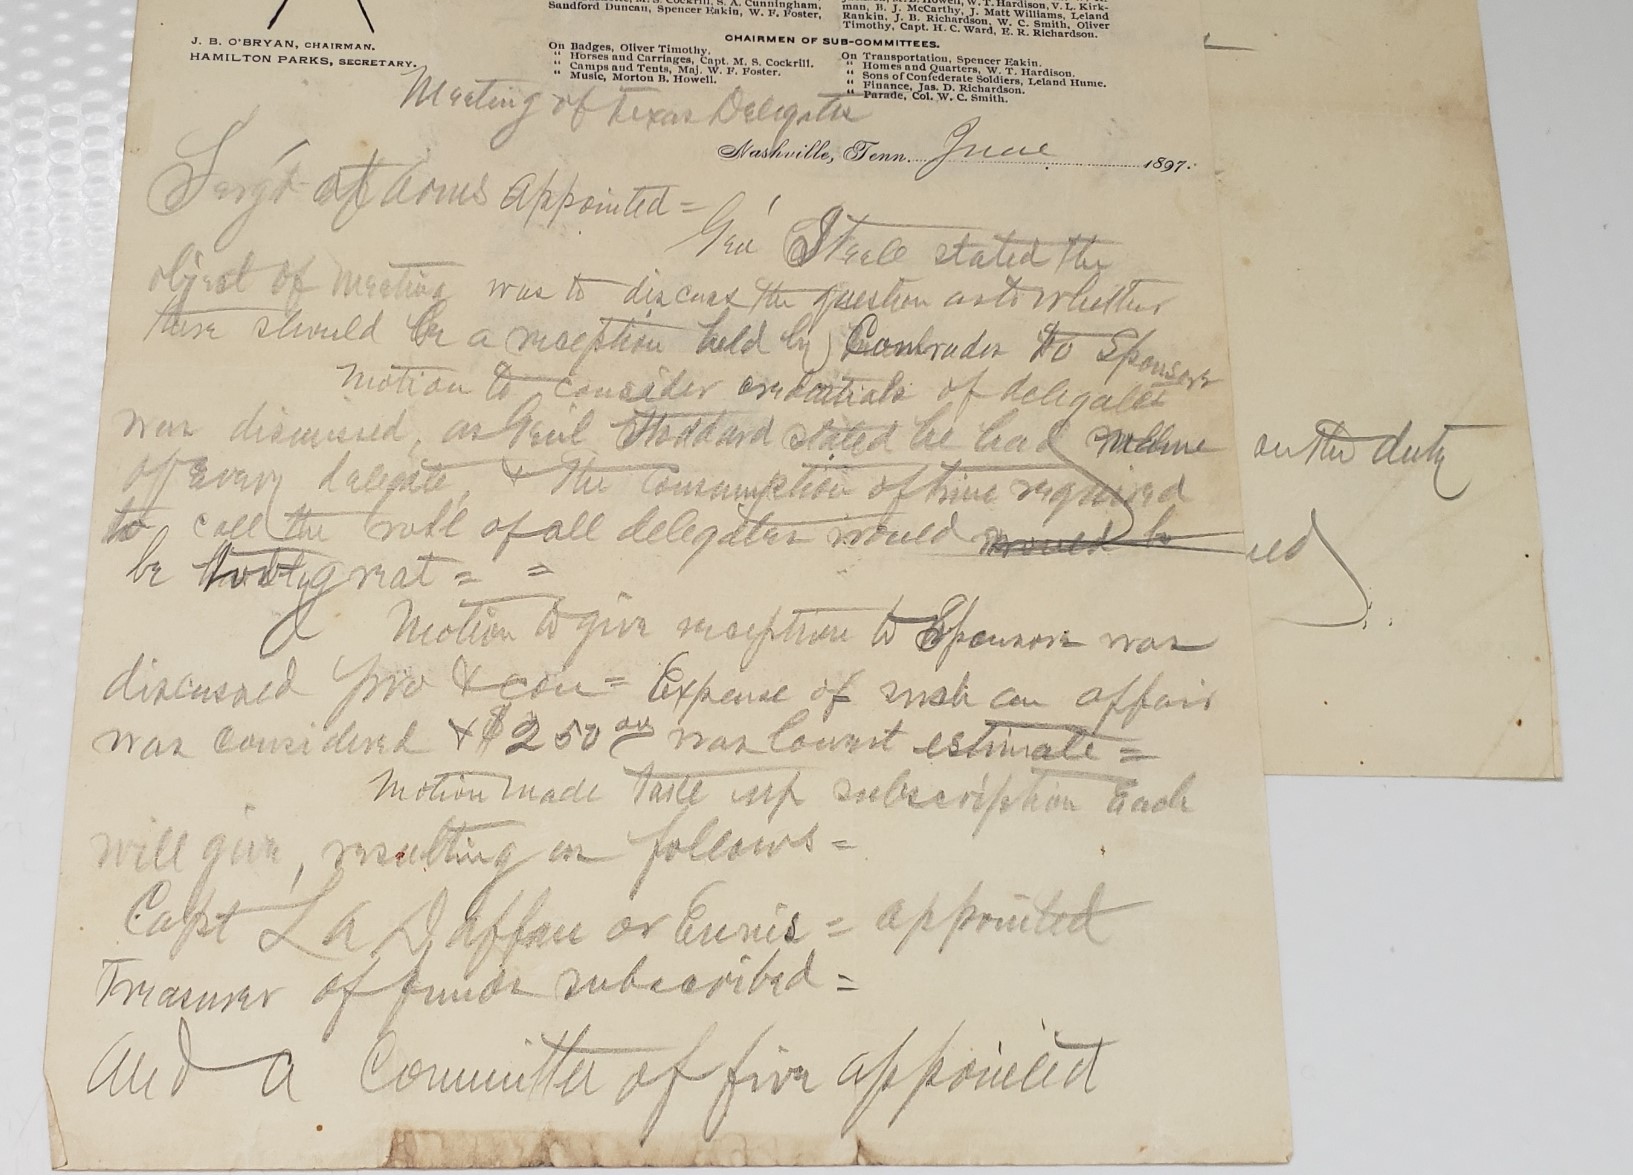 M. S. Cockrill, S. A. Cunningham,
Sandford Duncan, Spencer Eakin, W. F. Foster,
Howell, W. T. Hardison, V. L. Kirk-
man, B. J. McCarthy, J. Matt Williams, Leland
Rankin, J. B. Richardson, W. C. Smith, Oliver
Timothy, Capt. H. C. Ward, E. R. Richardson.
J. B. O'BRYAN, CHAIRMAN.
HAMILTON PARKS, SECRETARY.
CHAIRMEN OF SUB-COMMITTEES.
On Badges, Oliver Timothy.
" Horses and Carriages, Capt. M. S. Cockrill.
" Camps and Tents, Maj. W. F. Foster.
" Music, Morton B. Howell.
On Transportation, Spencer Eakin.
" Homes and Quarters, W. T. Hardison.
" Sons of Confederate Soldiers, Leland Hume.
" Finance, Jas. D. Richardson.
" Parade, Col. W. C. Smith.
Meeting of Texas Delegates
Nashville, Tenn. June 1897.
Serg't at Arms appointed =
Gen' Steele stated the
object of meeting was to discuss the question as to whether
there should be a reception held by Comrades to Sponsors
Motion to consider credentials of delegates
was discussed, as Genl Stoddard stated he had
of every delegate, & the consumption of time required
to call the roll of all delegates would would be
be too great = =
Motion to give reception to Sponsors was
discussed pro & con = Expense of such an affair
was considered & $250 was lowest estimate =
Motion made take up subscription Each
will give, resulting as follows =
Capt L A Daffan of Ennis = appointed
Treasurer of funds subscribed =
And a Committee of five appointed
on the duty
ed